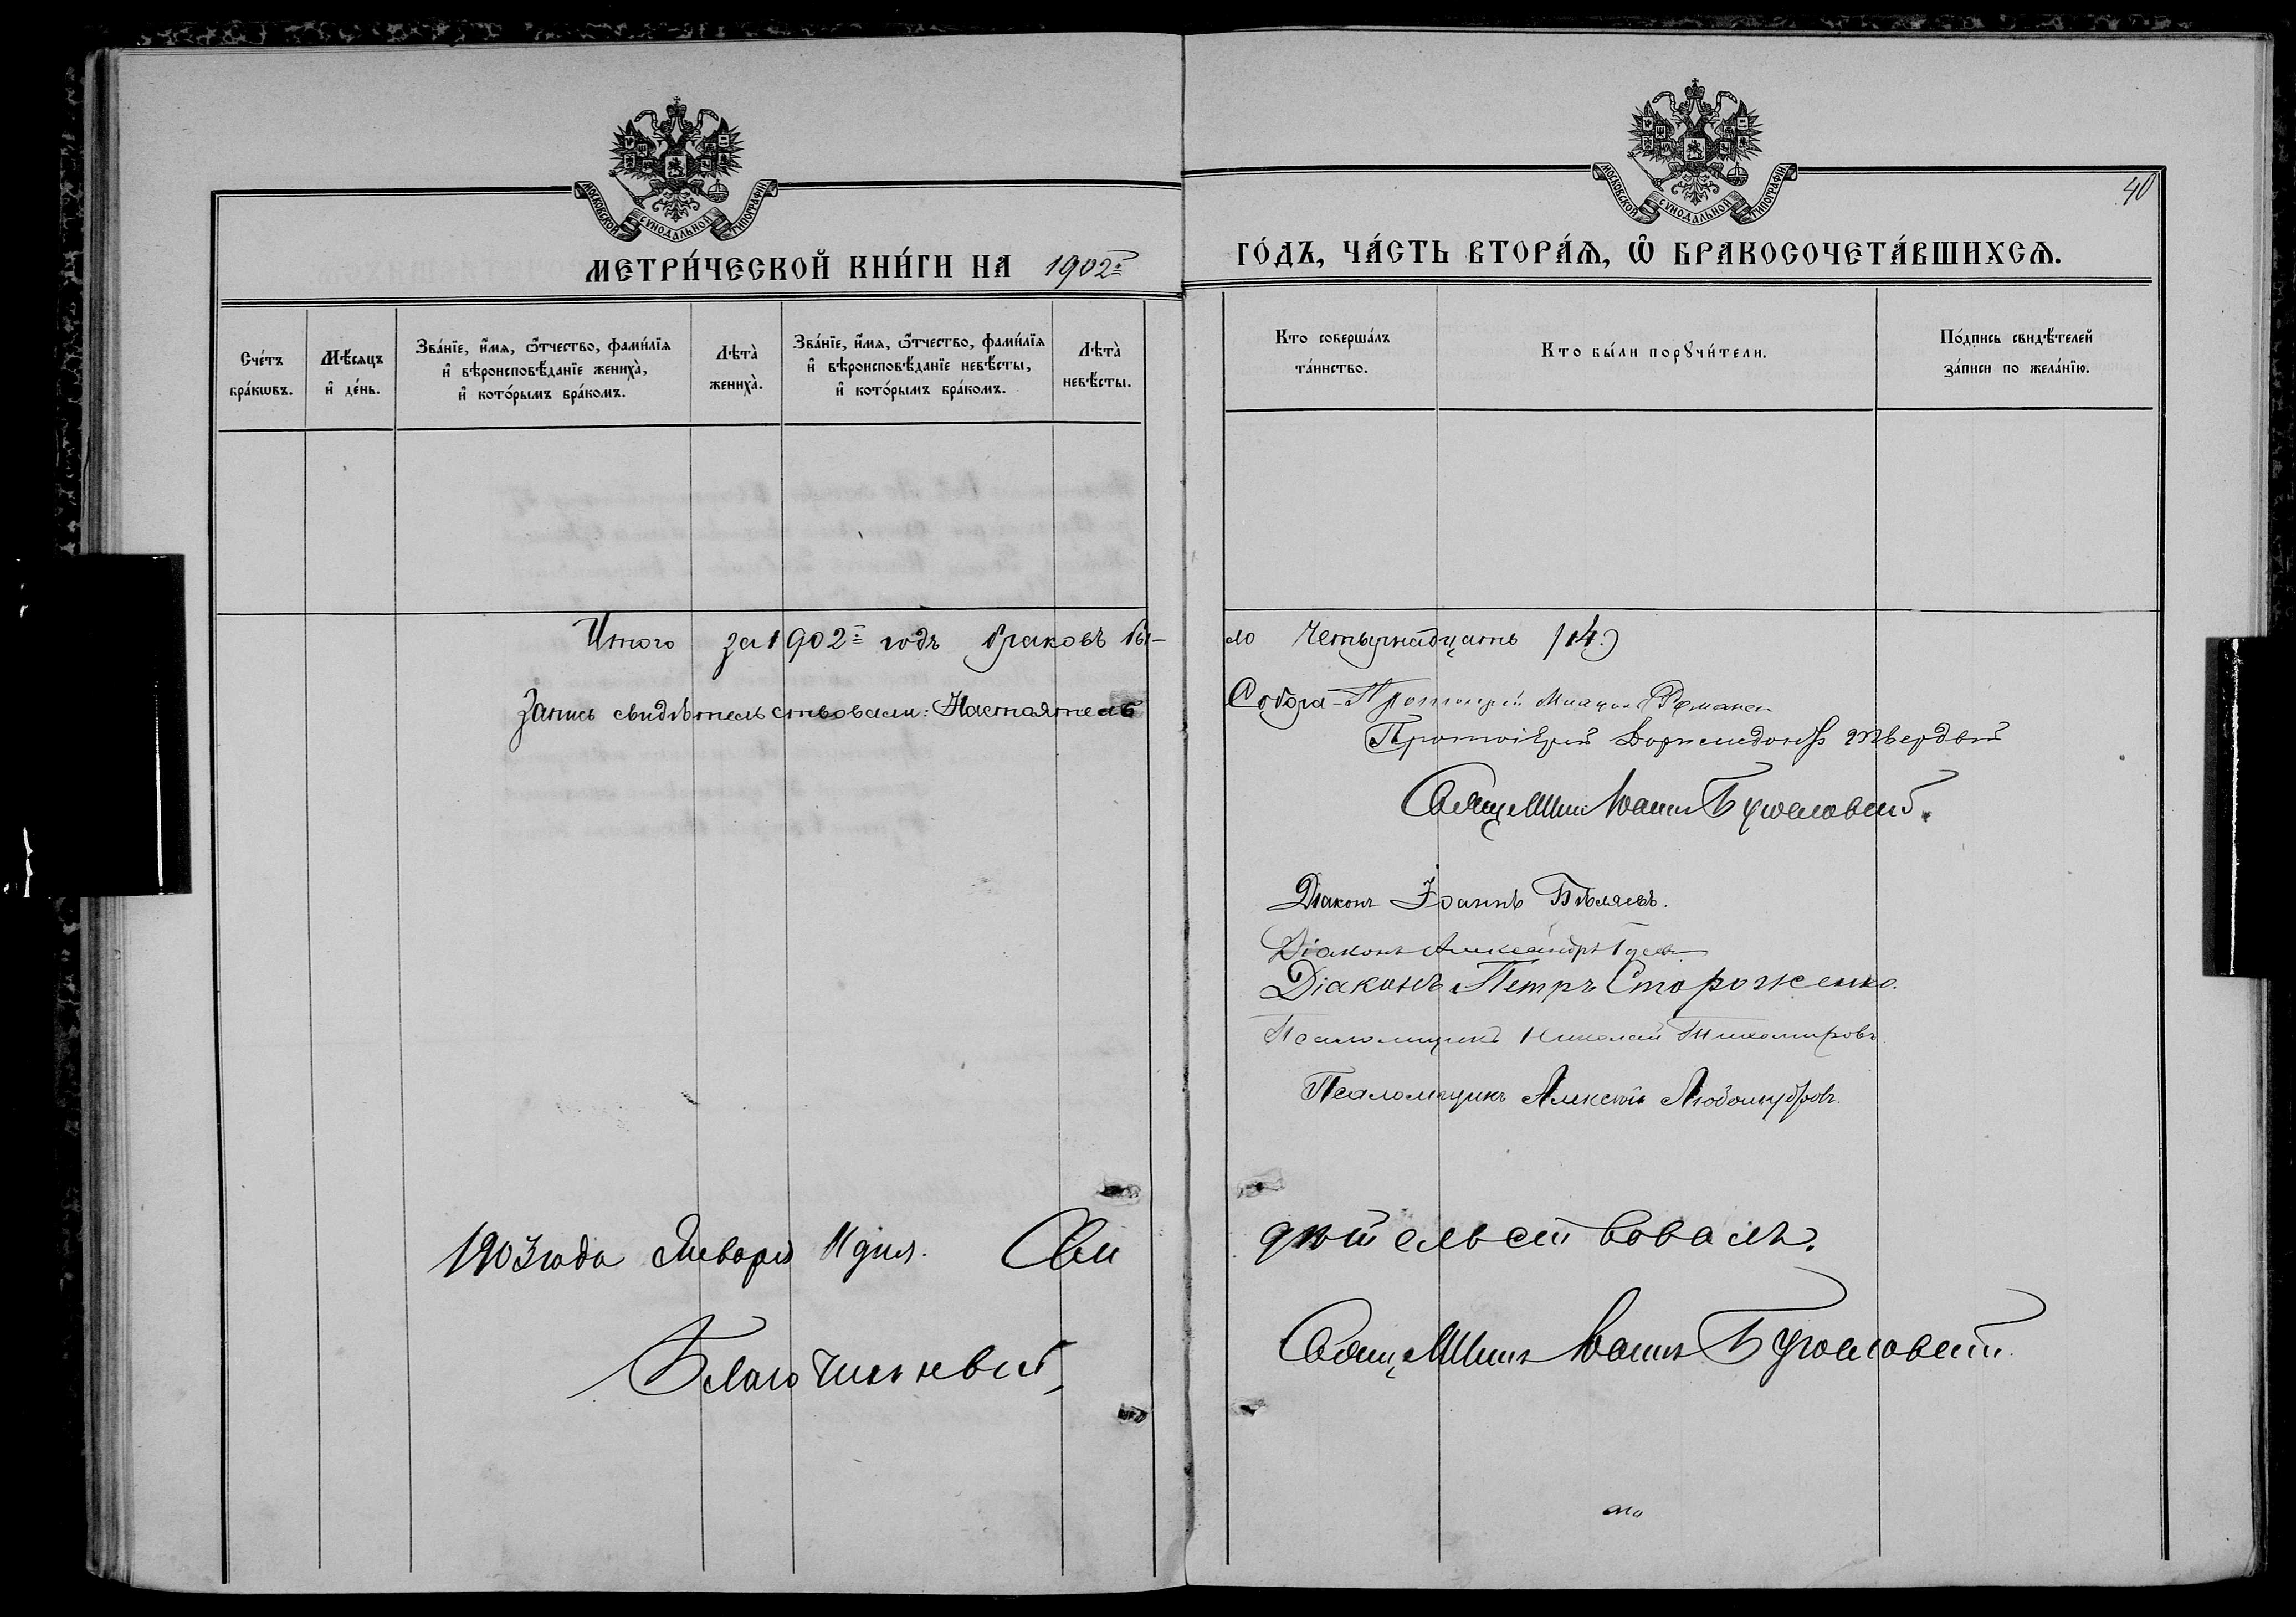 МОСКОВСКОЙ СѴНОДАЛЬНОЙ ТИПОГРАФІИ
МОСКОВСКОЙ СѴНОДАЛЬНОЙ ТИПОГРАФІИ
40
МЕТРИ́ЧЕСКОЙ КНИ́ГИ НА 1902й ГО́ДЪ, ЧА́СТЬ ВТОРА́Ѧ, Ѡ҆ БРАКОСОЧЕТА́ВШИХСѦ.
Сче́тъ
бра́кѡвъ.
Мѣ́сяцъ
и҆ де́нь.
Зва́нїе, и҆́мѧ, ѻ҆́тчество, фами́лїѧ
и҆ вѣроисповѣ́данїе жениха̀,
и҆ кото́рымъ бра́комъ.
Лѣта̀
жениха̀.
Зва́нїе, и҆́мѧ, ѻ҆́тчество, фами́лїѧ
и҆ вѣроисповѣ́данїе невѣ́сты,
и҆ кото́рымъ бра́комъ.
Лѣта̀
невѣ́сты.
Кто соверша́лъ
та́инство.
Кто бы́ли порꙋчи́тели.
По́дпись свидѣ́телей
за́писи по жела́нїю.
Итого за 1902й годъ браковъ бы-
ло четырнадцать (14)
Запись свидѣтельствовали: Настоятель
Собора Протоіерей
Протоіерей Твердый
Священникъ Іоаннъ
Діаконъ Іоаннъ Бѣляевъ.
Діаконъ Александръ Гусевъ
Діаконъ Петръ Стороженко.
Псаломщикъ Николай Тихомировъ.
Псаломщикъ Алексѣй Любомудровъ.
1903 года Января 11 дня. Сви
дѣтельствовалъ.
Благочинный,
Священникъ Іоаннъ